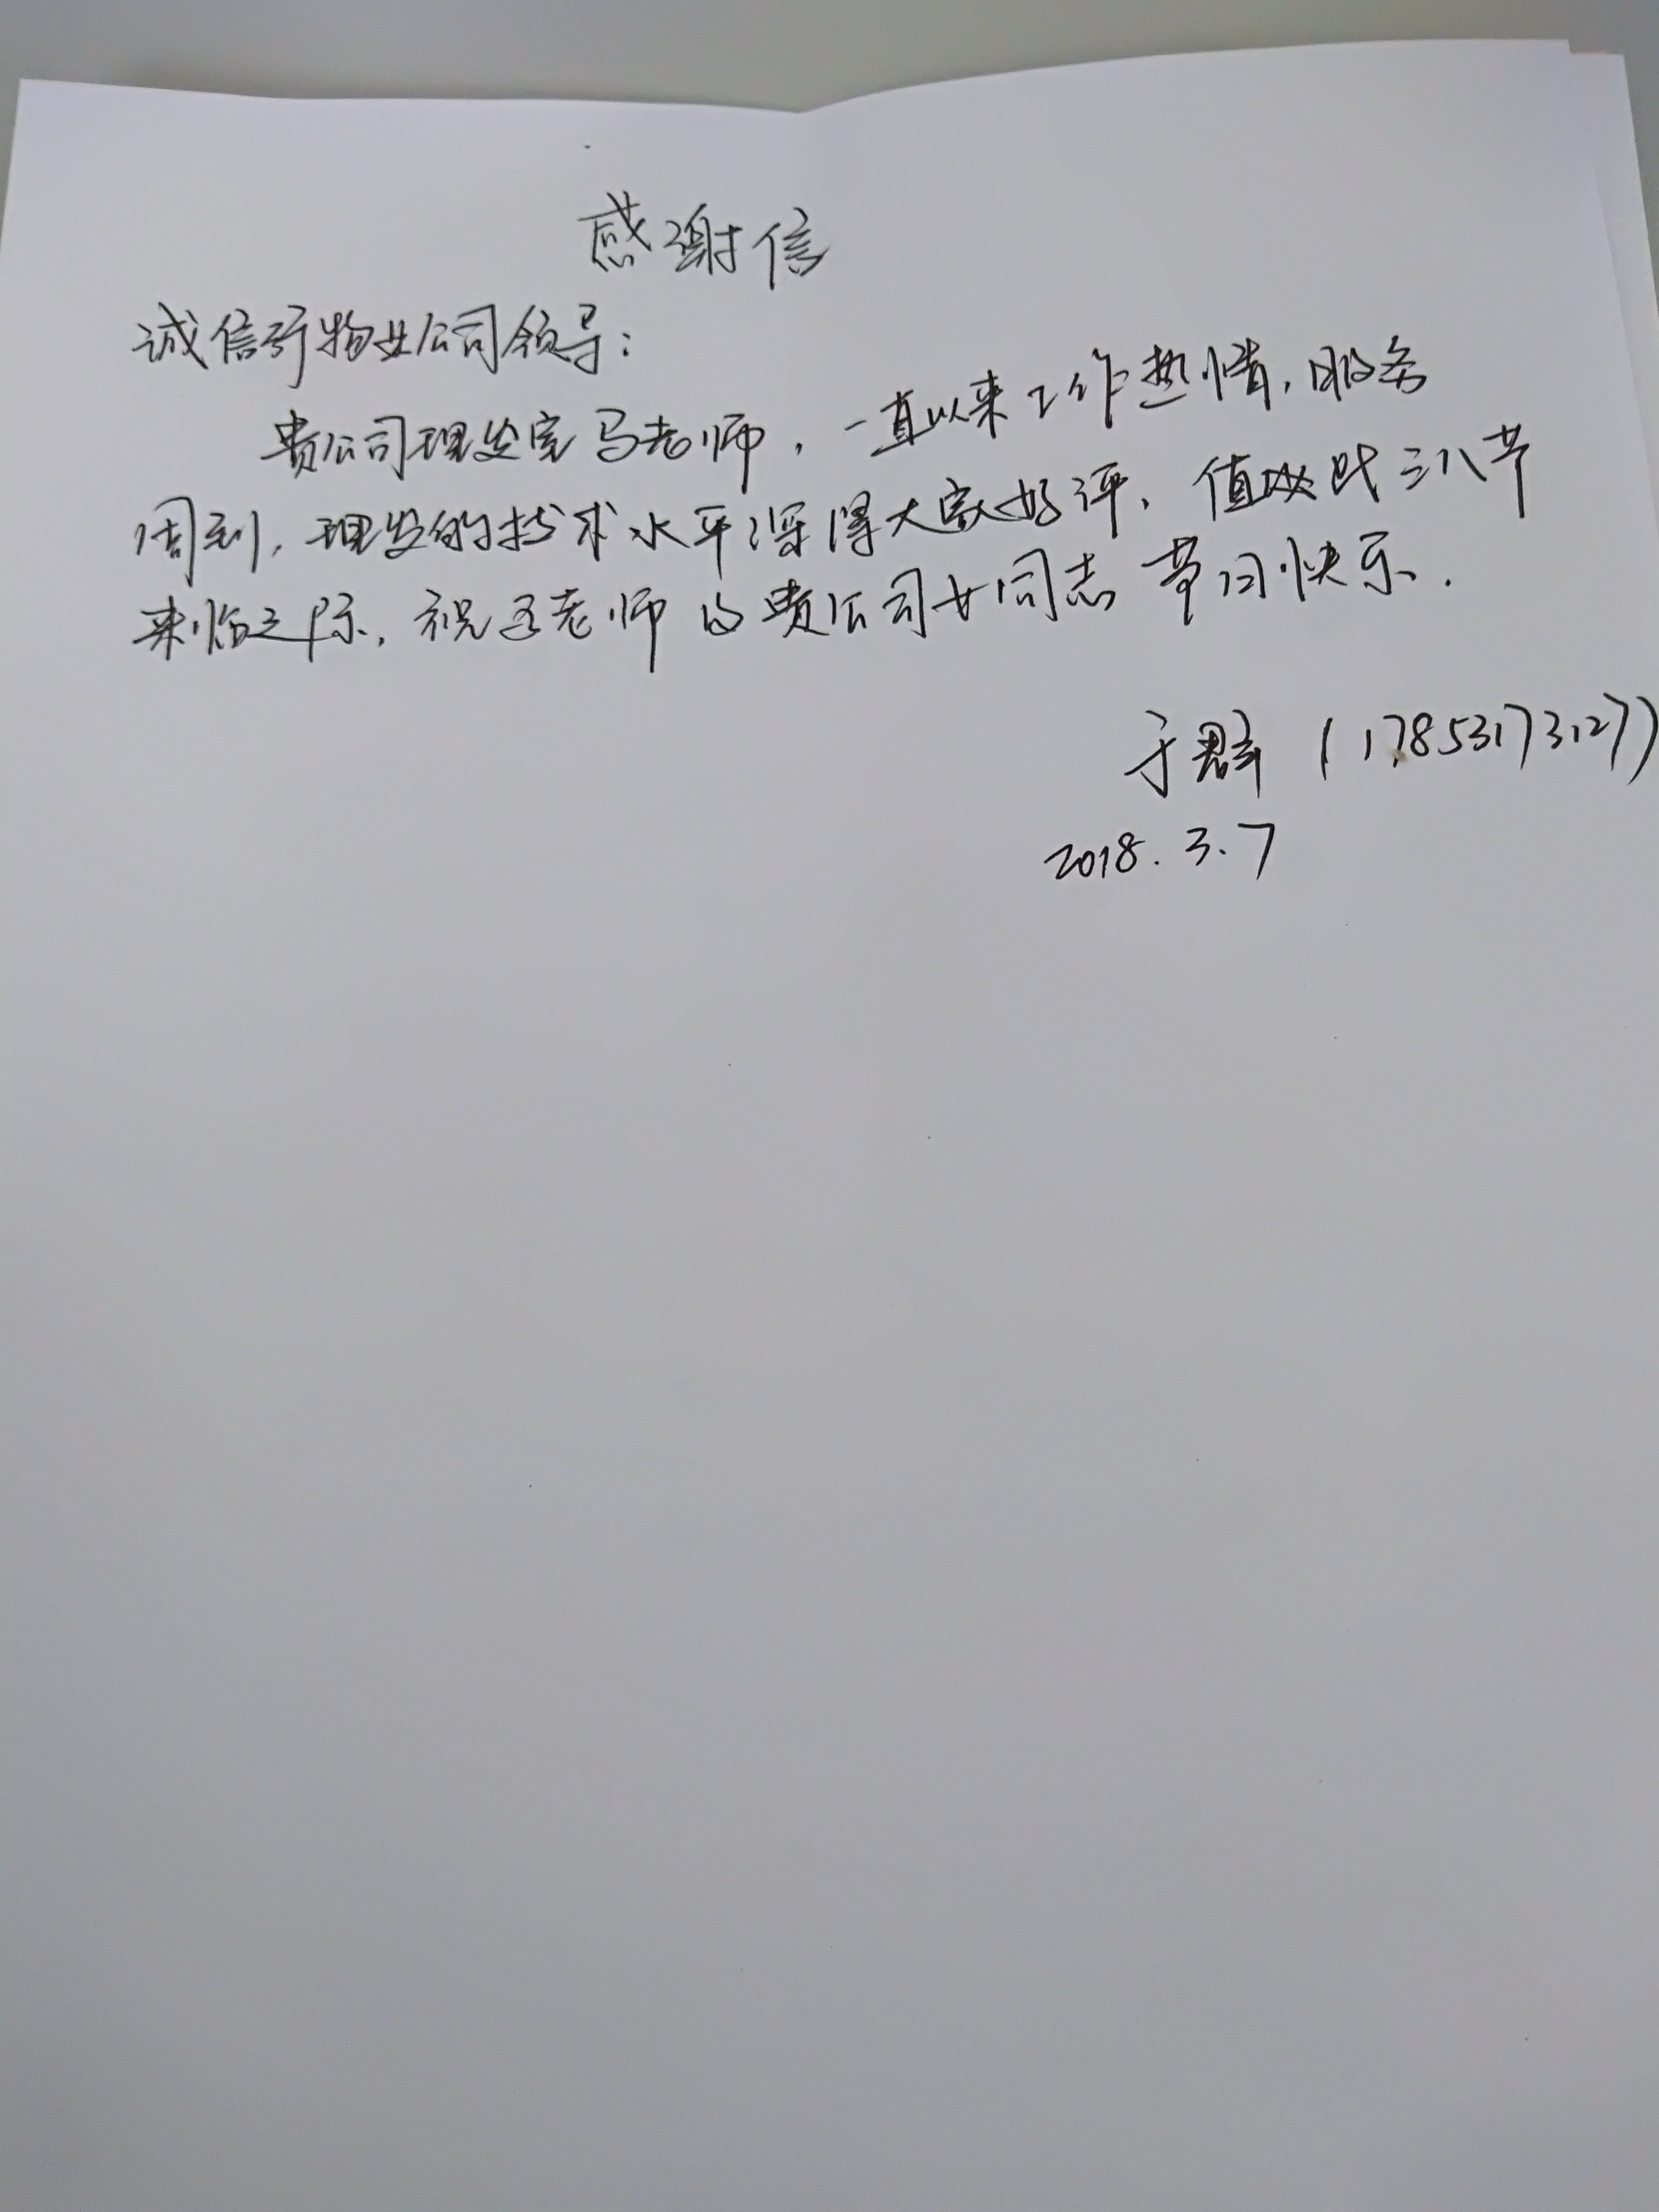 感谢信
诚信行物业公司领导：
贵公司理发室马老师，一直以来工作热情，服务
周到，理发的技术水平深得大家好评，值此 三八节
来临之际，祝 老师 贵公司女同志 节日快乐．
于群（17853173127）
2018.3.7